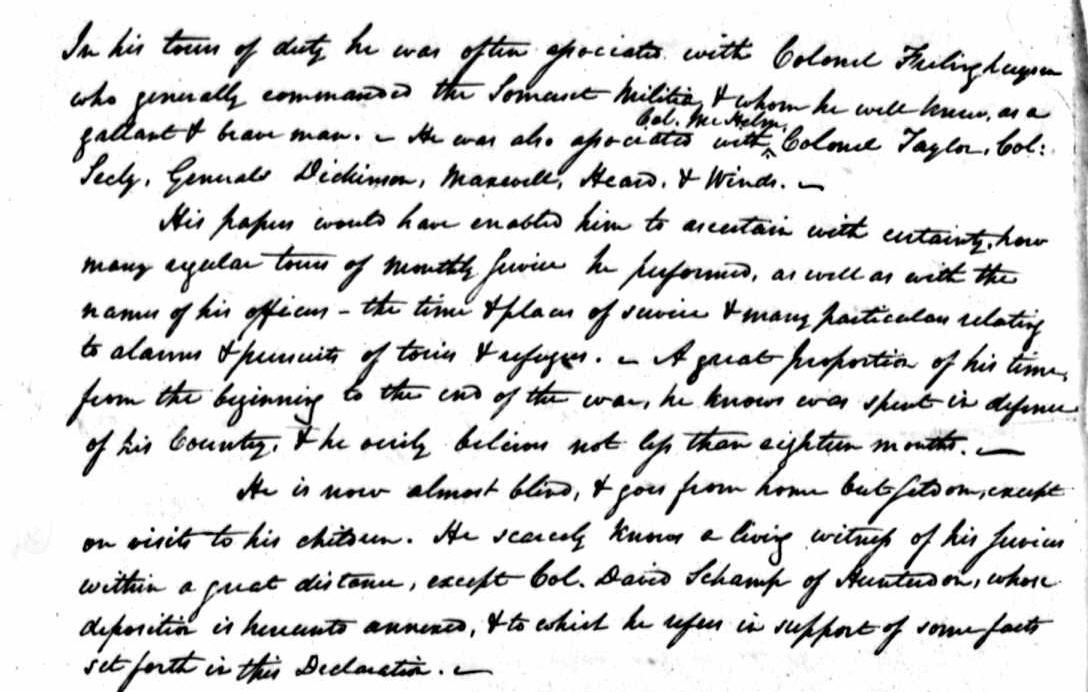 In his tours of duty he was often associated with Colonel Frelinghuysen
who generally commanded the Somerset Militia, & whom he well knew, as a
Col. McHelm,
gallant & brave man. — He was also associated with ^ Colonel Taylor, Col:
Seely, Generals Dickinson, Maxwell, Heard, & Winds. —
His papers would have enabled him to ascertain with certainty, how
many regular tours of monthly service he performed, as well as with the
names of his officers – the time & places of service & many particulars relating
to alarms & pursuits of tories & refugees. — A great proportion of his time,
from the beginning to the end of the war, he knows was spent in defence
of his Country, & he verily believes not less than eighteen months. —
He is now almost blind, & goes from home but seldom, except
on visits to his children. He scarcely knows a living witness of his services
within a great distance, except Col. David Schamp of Hunterdon, whose
deposition is hereunto annexed, & to which he refers in support of some facts
set forth in this Declaration. —